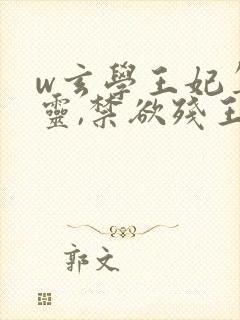 w玄學王妃
靈,禁欲殘王
郭文